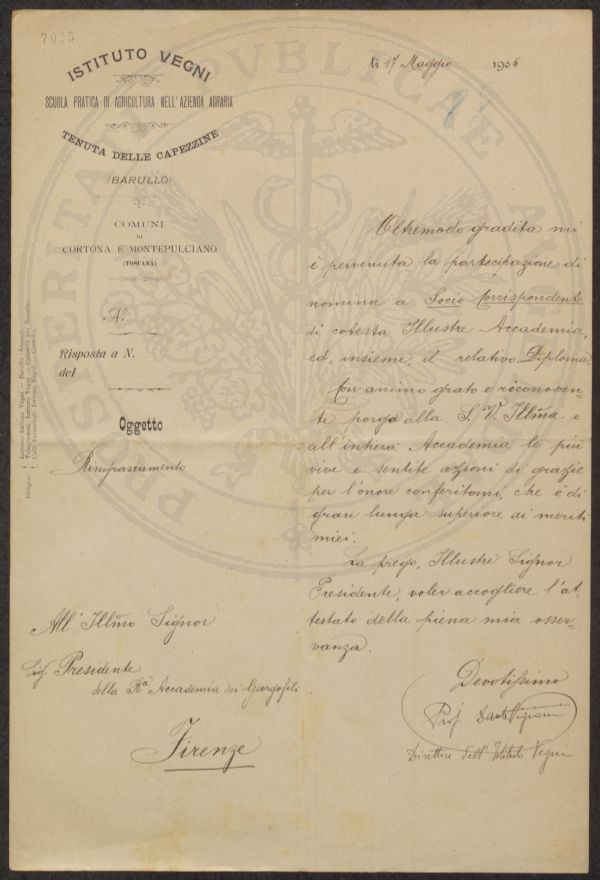 7095
ISTITUTO VEGNI
SCUOLA PRATICA DI AGRICOLTURA NELL'AZIENDA AGRARIA
TENUTA DELLE CAPEZZINE
(BARULLO)
COMUNI
DI
CORTONA E MONTEPULCIANO
(TOSCANA)
N.
Risposta a N.
del
Oggetto
Ringraziamento
All' Illmo Signor
Sig. Presidente
della Ra Accademia dei Georgofili
Firenze
li 17 Maggio 1906
Oltremodo gradita mi
è pervenuta la partecipazione di
nomina a Socio Corrispondente
di cotesta Illustre Accademia,
ed, insieme, il relativo Diploma.
Con animo grato e riconoscen-
te porgo alla S. V. Illma e
all'intera Accademia le più
vive e sentite azioni di grazie
per l'onore conferitomi, che è di
gran lunga superiore ai meriti
miei.
La prego, Illustre Signor
Presidente, voler accogliere l'at-
testato della piena mia osser-
vanza.
Devotissimo
Prof. Dante
Direttore dell'Istituto Vegni
PROSPERITATI PUBLICAE